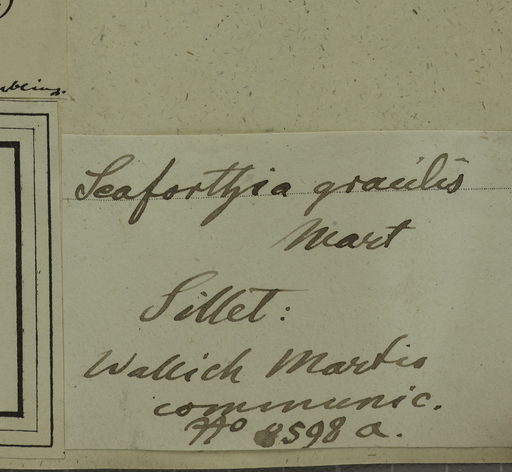 Seaforthia gracilis
Mart
Sillet:
Wallich Martio
communic.
No 8598 a.